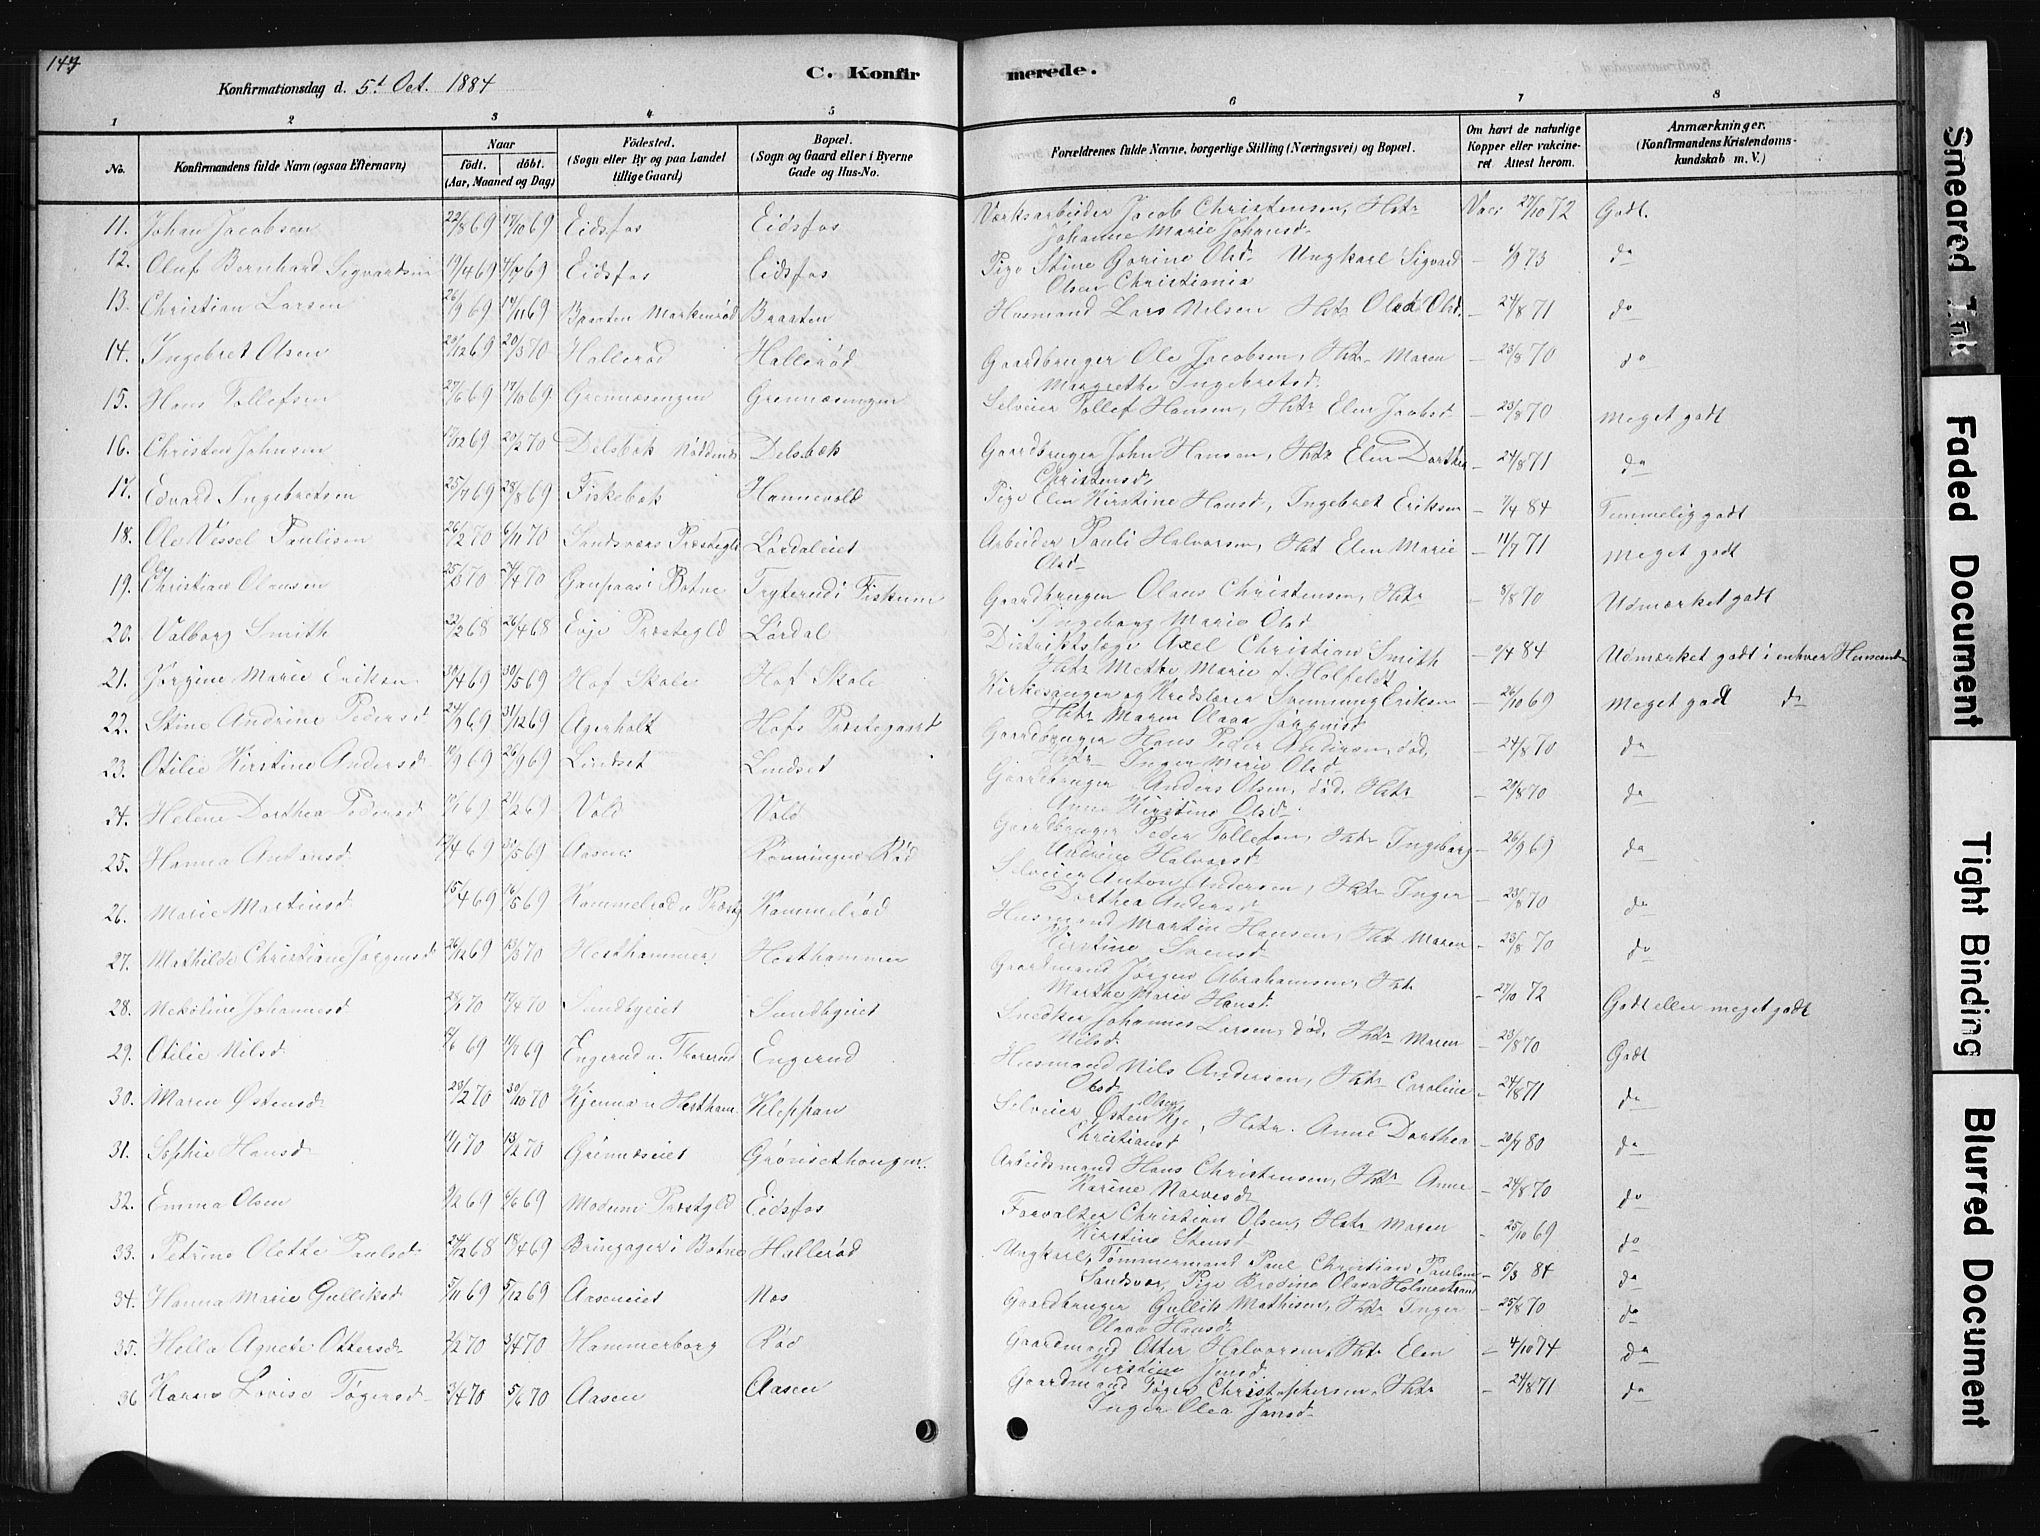 147
Konfirmationsdag d. 5t Oct. 1884
C. Konfirmerede.
1 2 3 4 5 6 7 8
No. Konfirmandens fulde Navn (ogsaa Efternavn) Naar födt. döbt. (Aar, Maaned og Dag) Födested. (Sogn eller By og paa Landet tillige Gaard) Bopæl. (Sogn og Gaard eller i Byerne Gade og Hus-No. Forældrenes fulde Navne, borgerlige Stilling (Næringsvei) og Bopæl. Om havt de naturlige Kopper eller vakcineret. Attest herom. Anmærkninger. (Konfirmandens Kristendomskundskab m. V.)
11. Johan Jacobsen 22/8 69 17/10 69 Eidsfos Eidsfos Værksarbeider Jacob Christensen, Hstr Johanne Marie Johansd. Vac. 27/10 72 Godt.
12. Oluf Bernhard Sigvardsen 19/4 69 4/7 69 Eidsfos Eidsfos Pige Stine Gorine Olsd. Ungkarl Sigvard Olsen Christiania 73 do
13. Christian Larsen 26/9 69 14/11 69 Braaten Markerød Braaten Husmand Lars Nilsen Hstr Olsd. 24/8 71 do
14. Ingebret Olsen 20/12 69 20/3 70 Hallerød Hallerød Gaardbruger Ole Jacobsen, Hstr Maren Margrethe Ingebretsd. 23/8 70 do
15. Hans Tollefsen 27/6 69 17/10 69 Grennæsengen Grennæsengen Selveier Tollef Hansen, Hstr Elen Jacobsd. 23/8 70 Meget godt
16. Christen Johnsen 17/12 69 20/2 70 Delsbæk Delsbæk Gaardbruger John Hansen, Hstr Elen Dorthea Christensd. 24/8 71 do
17. Edvard Ingebretsen 25/7 69 28/8 69 Fiskebæk Hannevold Pige Elen Kirstine Hansd., Ingebret Eriksen 7/4 84 Temmelig godt
18. Ole Vessel Paulisen 26/2 70 6/11 70 Sandsværs Præstegld Lørdaleiet Arbeider Pauli Halvorsen, Hst Elen Marie Olsd. 11/7 71 Meget godt
19. Christian Olausen 25/3 70 24/4 70 Gaupaas i Botne Tryterud i Fiskum Gaardbruger Olaus Christensen, Hstr Ingeborg Marie Olsd 8/8 70 Udmærket godt
20. Valborg Smith 22/2 68 26/4 68 Evje Præstegld Lørdal Distriktslæge Axel Christian Smith Hstr Mette Marie f. Holfeldt 9/4 84 Udmærket godt i enhver Henseende
21. Jørgine Marie Eriksen 30/4 69 30/5 69 Hof Skole Hof Skole Kirkesanger og Kredslærer Svennung Eriksen Hstr Maren Olava Jørginsd 26/10 69 Meget godt do
22. Stine Andrine Pedersd 24/9 69 31/12 69 Agerholt Hofs Præstegaard Gaardbruger Hans Peder Andersen, død, Hstr Inger Marie Olsd. 24/8 70 do
23. Otilie Kirstine Andersd 10/9 69 26/9 69 Lindset Lindset Gaardbruger Anders Olsen, død, Hstr Anne Kirstine Olsd. 20/8 70 do
24. Helene Dorthea Pedersd 69 21/2 69 Vold Vold Gaardbruger Peder Tollefsen, Hstr Ingeborg Andrine Halvorsd 26/9 69 do
25. Hanna Antonsd 19/4 69 5 69 Aasen Rønningen Rød Selveier Anton Andersen, Hstr Inger Dorthea Andersd 23/8 70 do
26. Marie Martinsd 15/4 69 16/5 69 Kammelrød Kammelrød Husmand Martin Hansen, Hst Maren Kirstine Svensd 23/8 70 do
27. Mathilde Christiane Jørgensd 26/12 69 13/3 70 Hesthammer Hesthammer Gaardmand Jørgen Abrahamsen, Hst Marthe Marie Hansd. 27/10 72 Godt eller meget godt
28. Nekoline Johannesd 28/1 70 17/4 70 Sandbyeiet Sandbyeiet Snedker Johannes Larsen, død, Hstr Maren Nilsd. 23/8 70 Godt
29. Otilie Nilsd. 6 69 69 Engerud u. Thorerud Engerud Husmand Nils Andersen, Hstr Caroline Olsd. 24/8 71 do
30. Maren Østensd. 23/2 70 30/10 70 Kjenna u Hestham. Kleppan Selveier Østen Olsen, Hstr. Anne Dorthea Christiansd 20/7 80 do
31. Sophie Hansd. 11/1 70 13/2 70 Grennæseiet Grønsethaugen Arbeidsmand Hans Christensen, Hstr Anne Karine Narvesd. 24/8 70 do
32. Emma Olsen 69 6/6 69 Modum Præstgld Eidsfos Forvalter Christian Olsen, Hstr Maren Kirstine Stensd. 25/10 69 do
33. Petrine Olette Paulsd. 24/12 68 18/4 69 Bringager i Botne Hallerød Ungkarl, Tømmermand Paul Christian Paulsen Sandsvær, Pige Bredine Olava Holmestrand 5/3 84 do
34. Hanna Marie Gulliksd 5/11 69 5/12 69 Aaseneiet Nøs Gaardbruger Gullik Mathisen, Hstr Inger Olava Hansd. 25/8 70 do
35. Helle Agnete Ottersd. 2/2 70 3/4 70 Hammerborg Rød Gaardmand Otter Halvorsen, Hstr Elen Kirstine Jensd. 4/10 74 do
36 Karen Lovise Tøgersd. 3/4 70 5/6 70 Aasen Aasen Gaardmand Tøger Christophersen, Hstr Inger Olea Jansd. 24/8 71 do
Smeared Ink
Faded Document
Tight Binding
Blurred Document